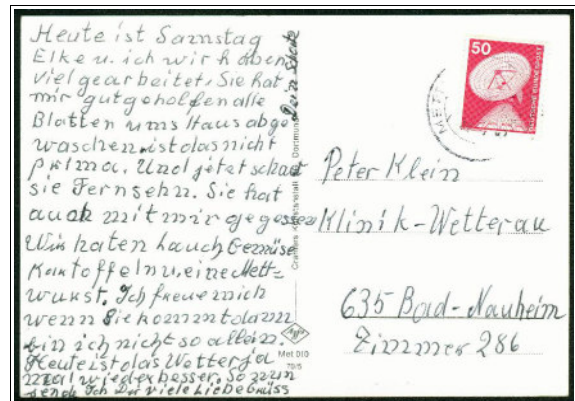 Heute ist Samstag
Elke u. ich wir haben
viel gearbeitet. Sie hat
mir gut geholfen alle
Blatten ums Haus abge
waschen, ist das nicht
prima. Und jetzt schaut
sie Fernsehn. Sie hat
auch mit mir gegessen
Wir haten Lauch Gemüse
Kartoffeln u. eine Mett=
wurst. Ich freue mich
wenn Sie kommt dann
bin ich nicht so allein.
Heute ist das Wetter ja
mal wieder besser. So nun
sende Ich Dir viele Liebe Grüss
Dein
Met 010
50
DEUTSCHE BUNDESPOST
Peter Klein
Klinik-Wetterau
635 Bad-Nauheim
Zimmer 286